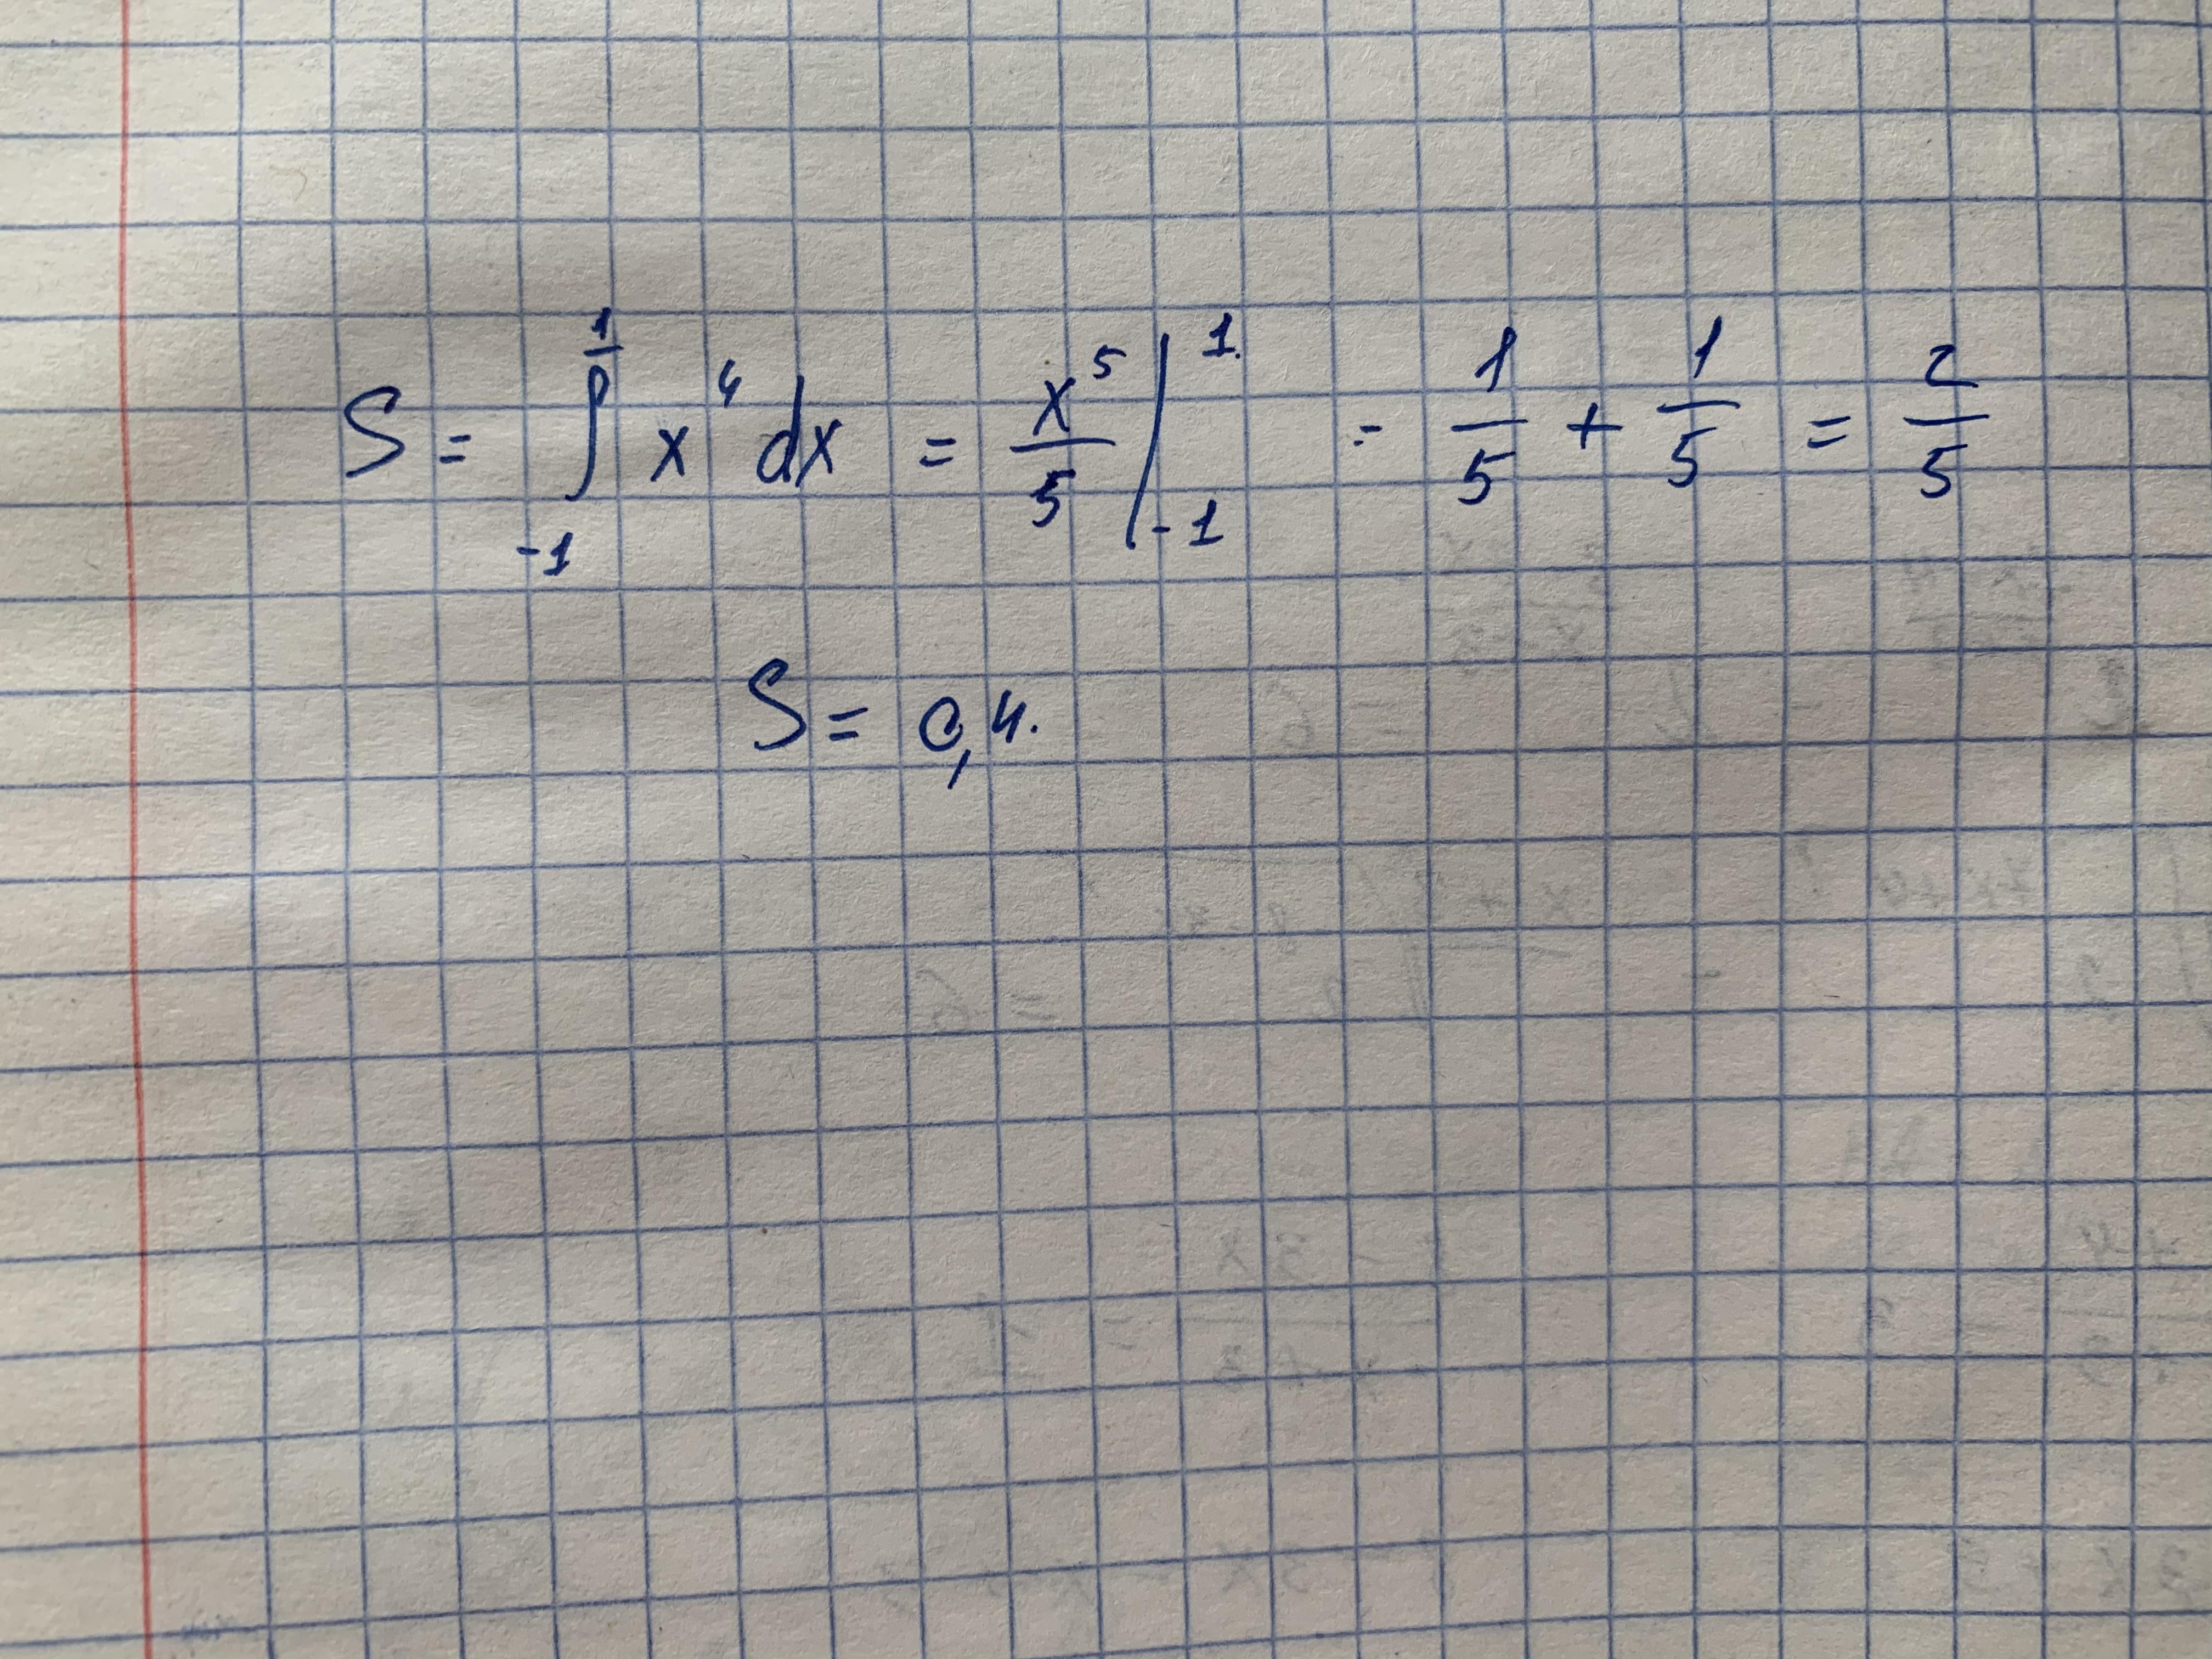 S = ∫₋₁¹ x⁴ dx = x⁵/5 |₋₁¹ = 1/5 + 1/5 = 2/5
S = 0,4.